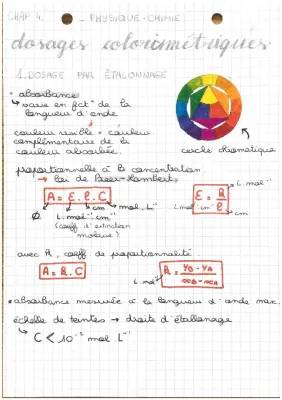 CHAP 4. - PHYSIQUE-CHIMIE
dosages colorimétriques
1. DOSAGE PAR ÉTALONNAGE
• absorbance
↳ varie en fct° de la longueur d'onde
couleur visible = couleur complémentaire de la couleur absorbée.
cercle chromatique
proportionnelle à la concentration
→ loi de Beer-Lambert
A = ε . l . C
Ø
cm
mol . L⁻¹
L. mol⁻¹ cm⁻¹
(coeff d'extinction molaire)
ε = k / l
L. mol⁻¹
cm
avec k, coeff de proportionnalité
A = k . C
L. mol⁻¹
k = (yB - yA) / (xB - xA)
• absorbance mesurée à la longueur d'onde max.
échelle de teintes → droite d'étalonnage
↳ C < 10⁻² mol L⁻¹